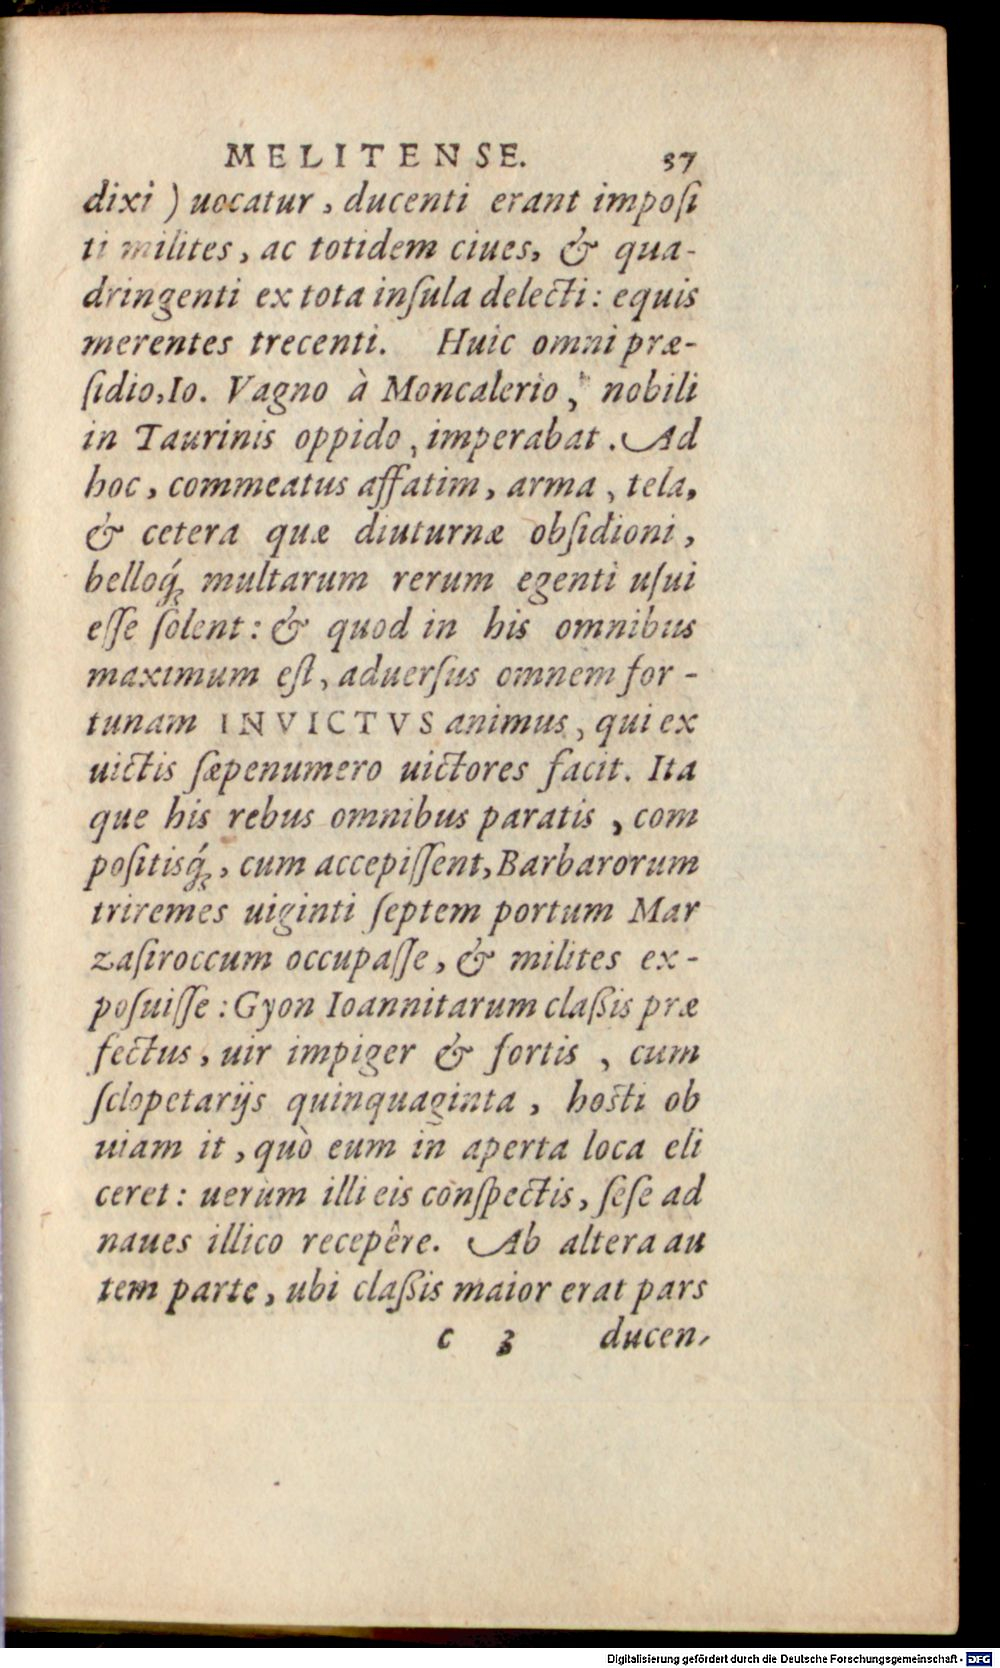 MELITENSE. 37
dixi ) uocatur, ducenti erant imposi
ti milites, ac totidem ciues, & qua-
dringenti ex tota insula delecti: equis
merentes trecenti. Huic omni præ-
sidio, Io. Vagno à Moncalerio, nobili
in Taurinis oppido, imperabat. Ad
hoc, commeatus affatim, arma, tela,
& cetera quæ diuturnæ obsidioni,
belloq́; multarum rerum egenti usui
esse solent: & quod in his omnibus
maximum est, aduersus omnem for-
tunam INVICTVS animus, qui ex
uictis sæpenumero uictores facit. Ita
que his rebus omnibus paratis, com
positisq́;, cum accepissent, Barbarorum
triremes uiginti septem portum Mar
zasiroccum occupasse, & milites ex-
posuisse: Gyon Ioannitarum claßis præ
fectus, uir impiger & fortis, cum
sclopetarijs quinquaginta, hosti ob
uiam it, quò eum in aperta loca eli
ceret: uerum illi eis conspectis, sese ad
naues illico recepêre. Ab altera au
tem parte, ubi claßis maior erat pars
c 3 ducen-
Digitalisierung gefördert durch die Deutsche Forschungsgemeinschaft - DFG